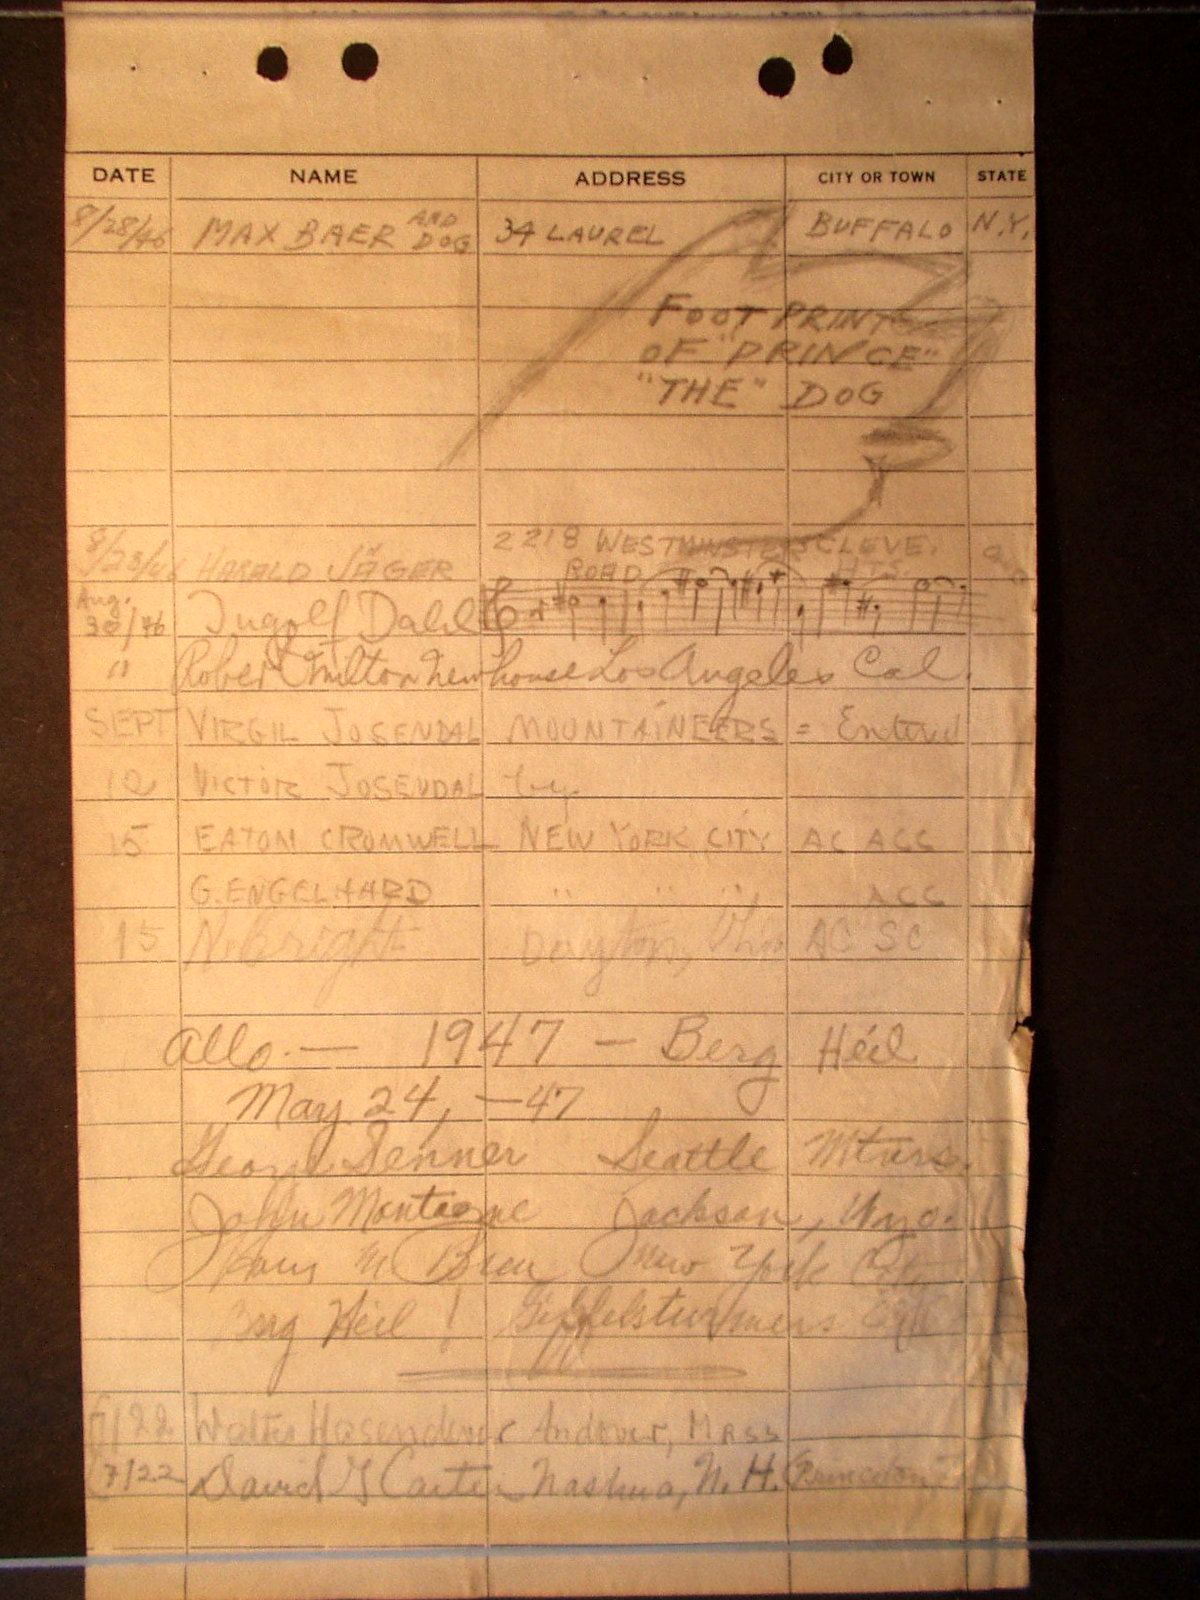 DATE NAME ADDRESS CITY OR TOWN STATE
8/28/46 MAX BAER AND DOG 34 LAUREL BUFFALO N.Y.
FOOT PRINT
OF "PRINCE"
"THE" DOG
2218 WESTMINSTER CLEVE.
HARALD JÄGER ROAD HTS.
Aug.
30/46 Ingolf Dahl
" Robert Milton Newhouse Los Angeles Cal.
SEPT VIRGIL JOSENDAL MOUNTAINEERS = Entered
12 VICTOR JOSENDAL by
15 EATON CROMWELL NEW YORK CITY AC ACC
G. ENGELHARD " " " ACC
15 Dayton, Ohio AC SC
Allo. — 1947 — Berg Heil
May 24, —47
George Senner Seattle Mtnrs.
John Montagne Jackson, Wyo.
New York City
Berg Heil ! Gipfelsturmers
/22 Walter Hasenclever Andover, MASS
7/22 David G Carter Nashua, N.H.